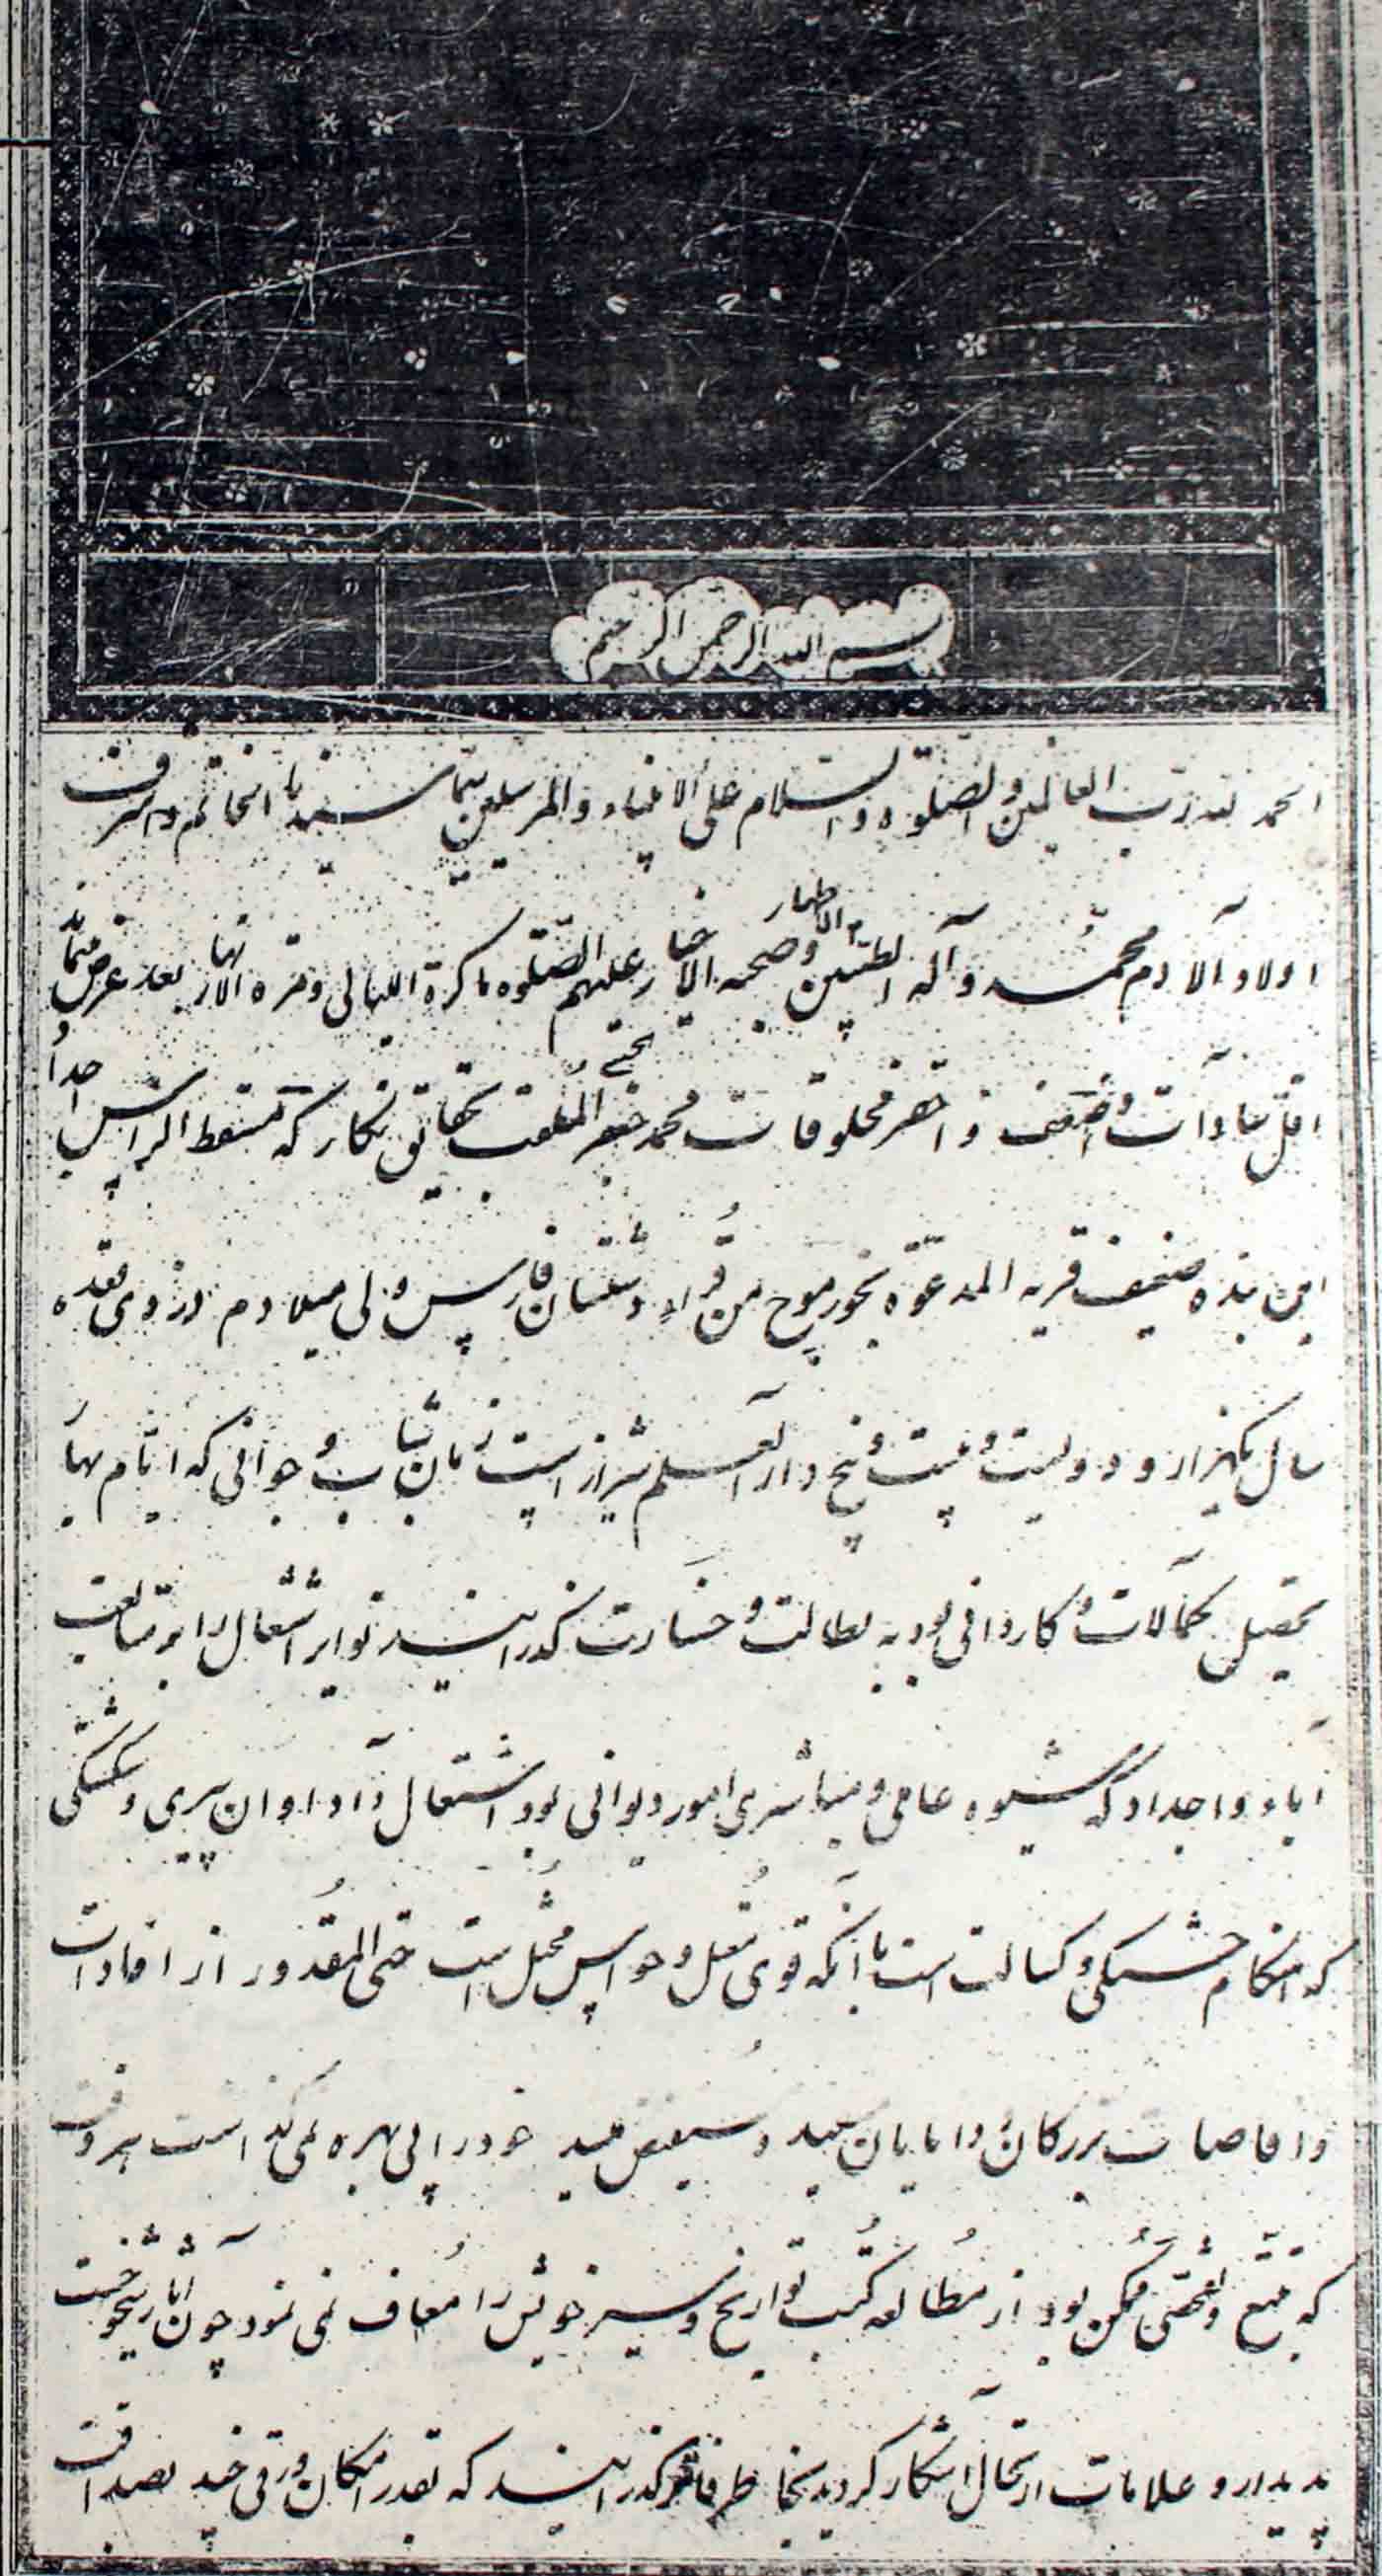 بسم الله الرحمن الرحیم
الحمد لله رب العالمین و الصلوة و السلام علی الانبیاء و المرسلین سیما سیدنا الخاتم و اشرف
اولاد آلادم محمد و آله الطیبین و الاطهار و صحبه الاخیار علیهم الصلوه ما کرة اللیالی و مره الانهار بعد عرض میکند
اقل سادات و اضعف و احقر مخلوقات محمد جعفر الملقب بحقایق نگار که مسقط الراس اجداد
این بنده ضعیف قریه المدعوة بخورموج من قراء دشتستان فارس ولی میلادم در ذی قعده
سال یکهزار و دویست و بیست و پنج دار العلم شیراز است زمان شباب و جوانی که ایام بهار
تحصیل کمالات و کاردانی بود به بطالت و خسارت گذرانید نوایر اشتعال را بمتابعت
آباء و اجداد که شیوه عاملی و مباشری امور دیوانی بود اشتغال داد اوان پیری و شکستگی
که هنگام خستگی و کسالت است با آنکه قوی منحل و حواس مختل است حتی المقدور از افادات
و افاضات بزرگان و دانایان سعید و مستفیض خود را بی بهره نمی گذاشت هر وقت
که تتبع و تفحصی ممکن بود از مطالعه کتب تواریخ و سیر خویش را معاف نمی نمود چون آثار شیخوخت
پدیدار و علامات ارتحال آشکار گردید بخاطر فاتر گذرانید که بقدر امکان ورقی چند بصداقت